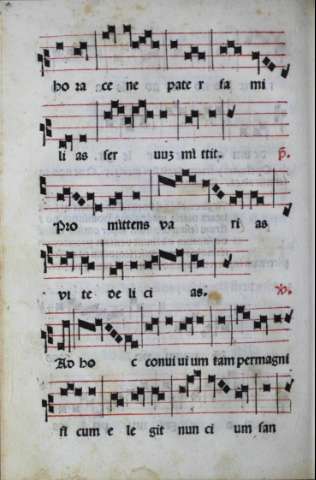 ho ra ce ne pater fa mi
li as ser uuʒ mi ttit. p̃.
Pro mittens va ri as
vi te de li ci as. ꝟ.
Ad ho c conui ui um tam permagni
fi cum e le git nun ci um san